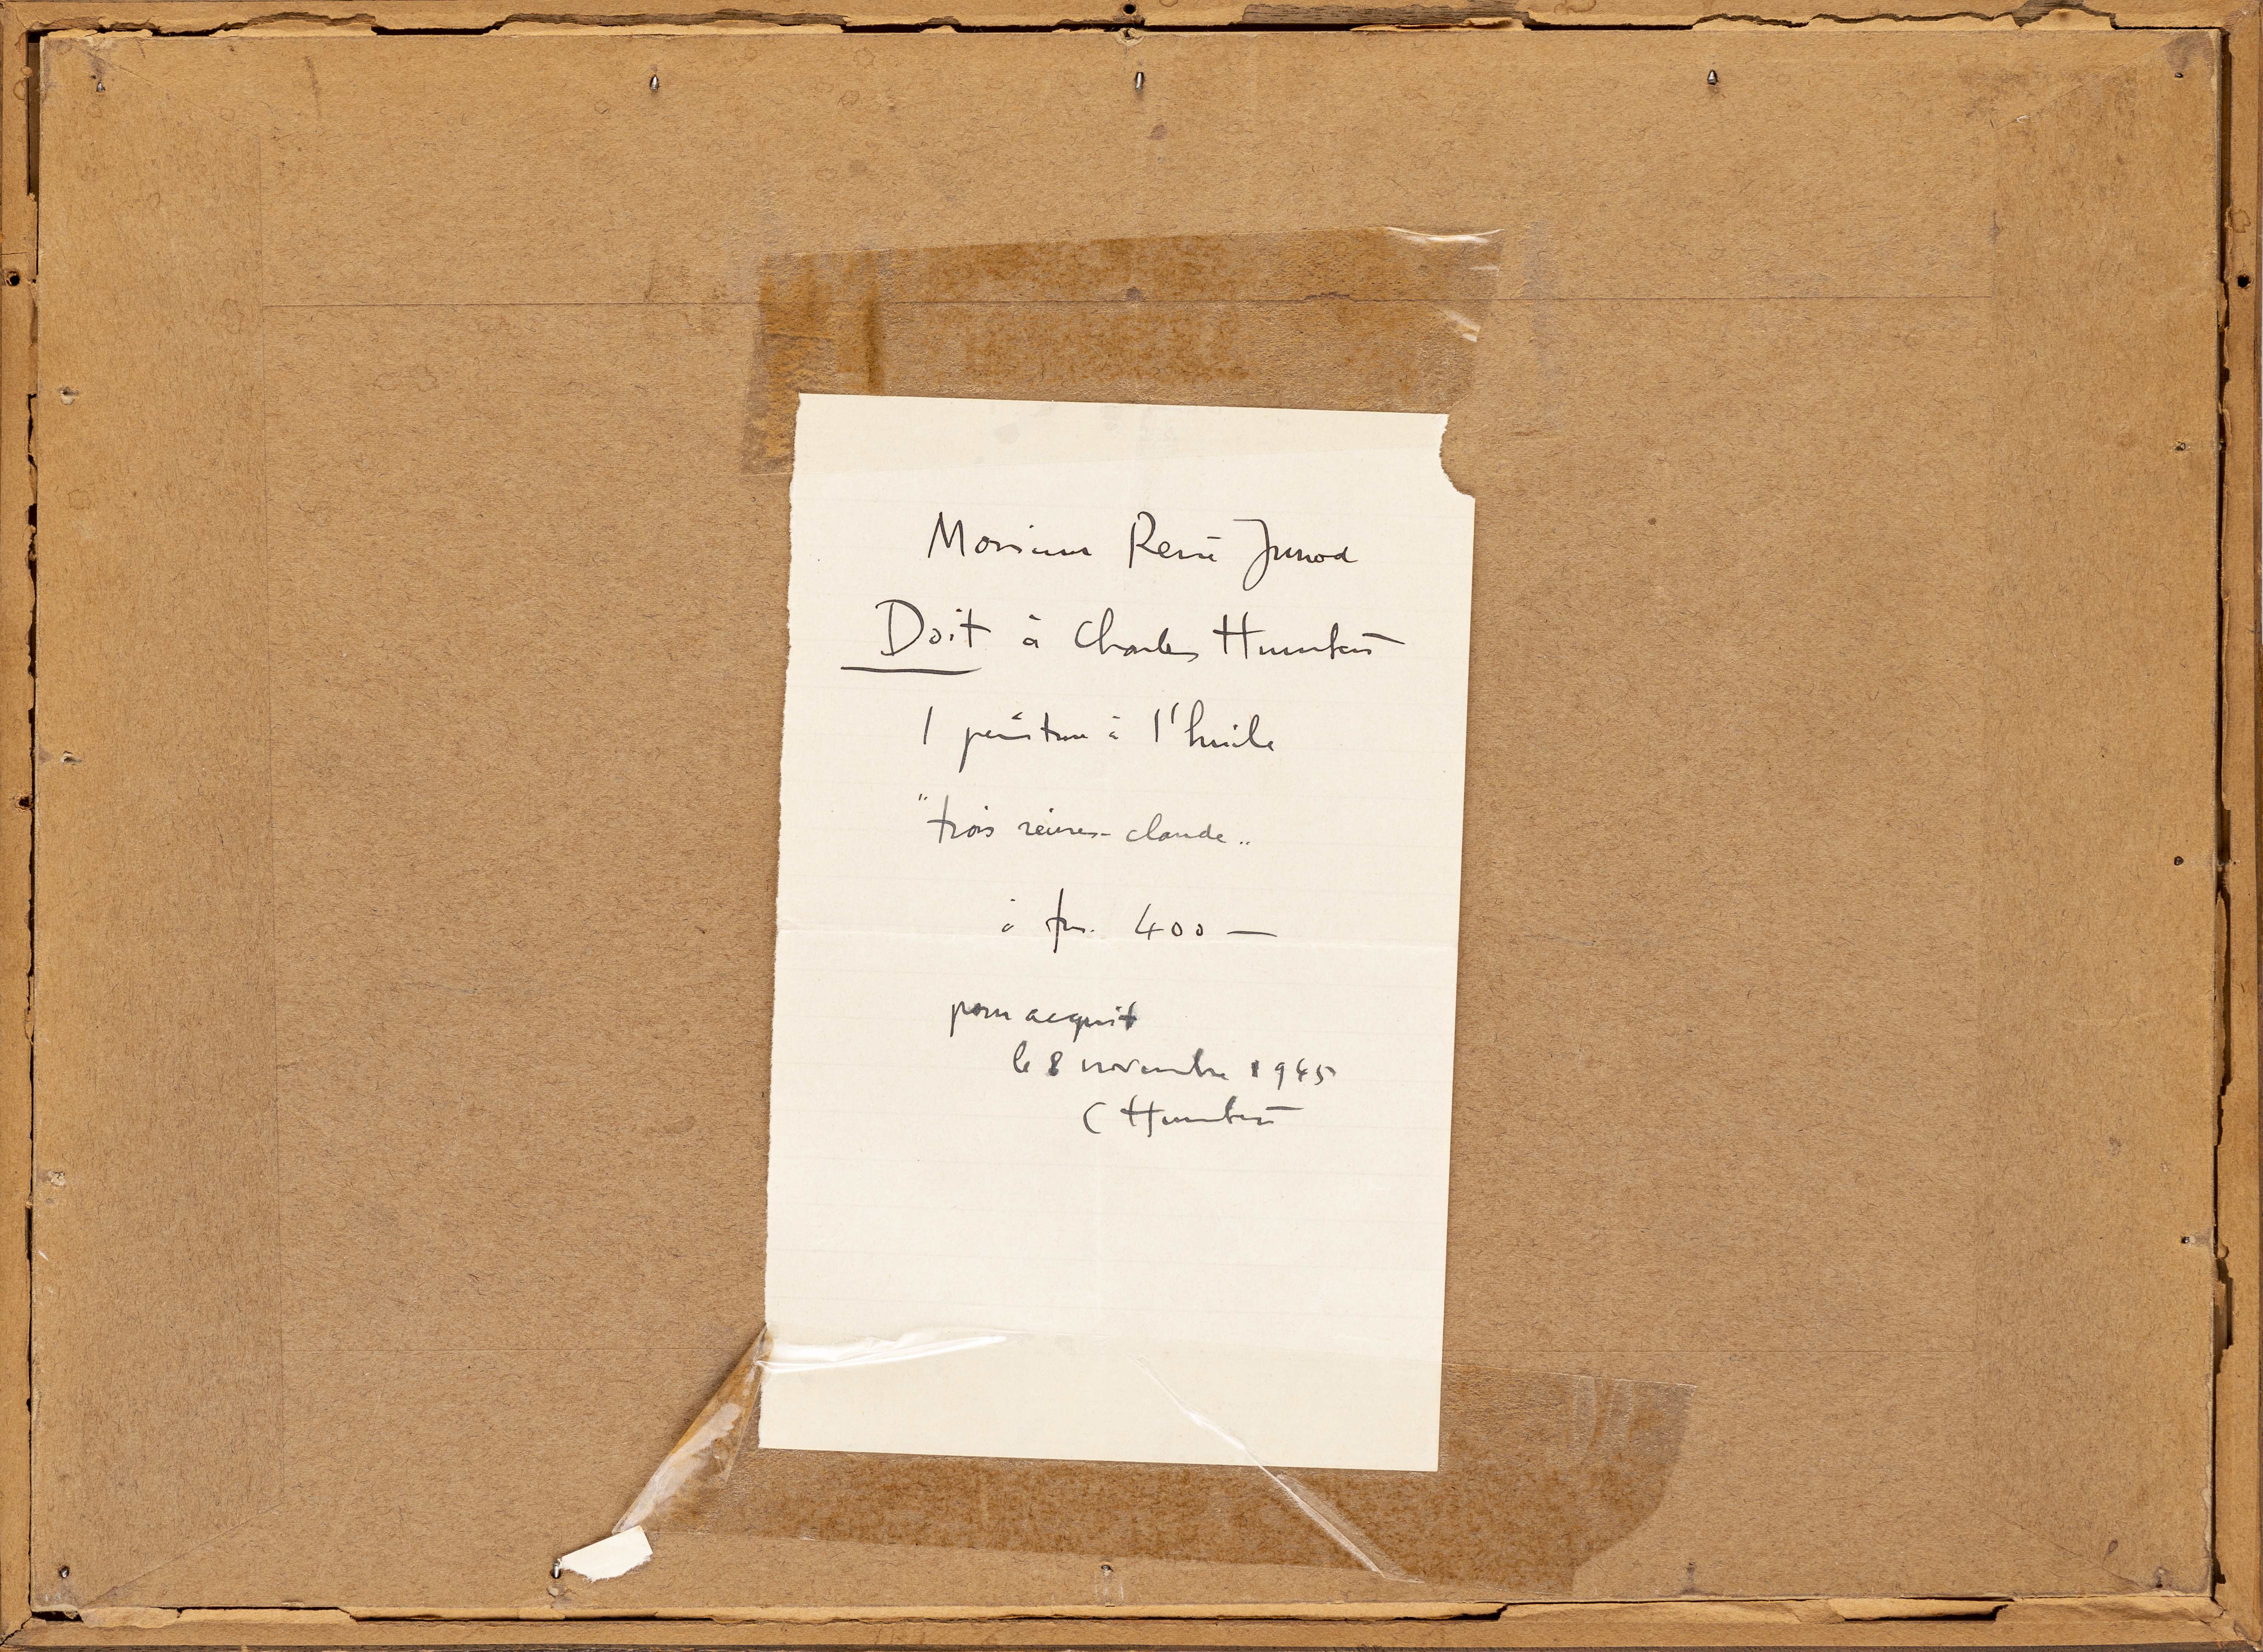 Monsieur René Junod
Doit à Charles Humbert
1 peinture à l'huile
"trois reines-claude"
à frs. 400 —
pour acquit
le 8 novembre 1945
C Humbert